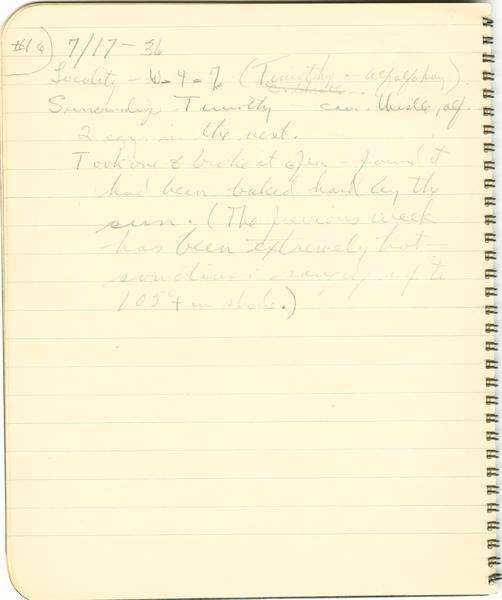 #16) 7/17-36
Locality - W-4-7 (Timothy - alfalfa hay).
Surrounding Timothy - can. thistle, alf.
2 eggs in the nest.
Took one & broke it open - found it
had been baked hard by the
sun. (The previous week
has been extremely hot -
sometimes ranging up to
105°+ in shade.)